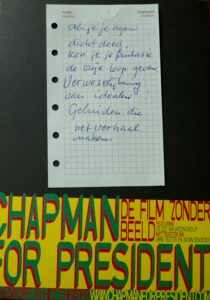 als je je ogen
dicht deed,
kon je je fantasie
de vrije loop geven.
Verwezenlijking
van idealen
Geluiden die
het verhaal
maken.
CHAPMAN
DE FILM ZONDER
BEELD
FOR PRESIDENT
WWW.CHAPMANFORPRESIDENT.COM